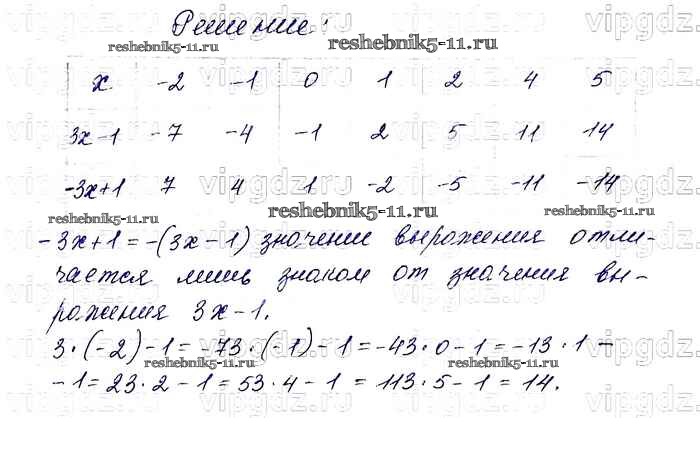 Решение:
x -2 -1 0 1 2 4 5
3x-1 -7 -4 -1 2 5 11 14
-3x+1 7 4 1 -2 -5 -11 -14
-3x+1=-(3x-1) значение выражения отли-
чается лишь знаком от значения вы-
ражения 3x-1.
3·(-2)-1=-73·(-1)-1=-43·0-1=-13·1-
-1=23·2-1=53·4-1=113·5-1=14.
reshebnik5-11.ru
reshebnik5-11.ru
reshebnik5-11.ru
reshebnik5-11.ru
reshebnik5-11.ru
reshebnik5-11.ru
reshebnik5-11.ru
vipgdz.ru